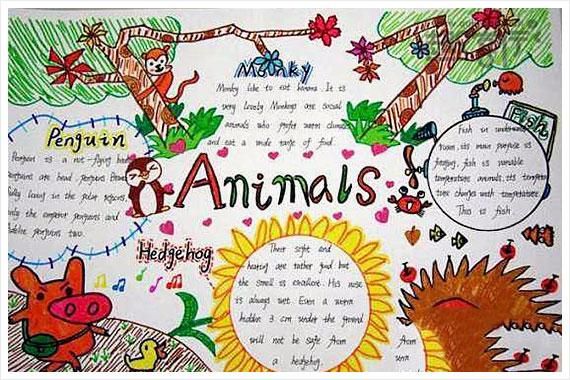 Monky
Monky like to eat banana. It is
very lovely Monkeys are social
animals who prefer warm climate
and eat a wide range of food.
Penguin
Penguin is a not-flying
Penguins are head penguins
living in the polar regions,
only the emperor penguins and
Adelie penguins two.
Animals
Fish
Fish in
its main purpose is
fish is variable
temperature animals, its
changes with temperature
This is fish.
Hedgehog
Their sight and
hearing are rather but
the smell is excellent. His nose
is always wet. Even a worm
hidden 3 cm under the ground
will not be safe from
a hedgehog.
from